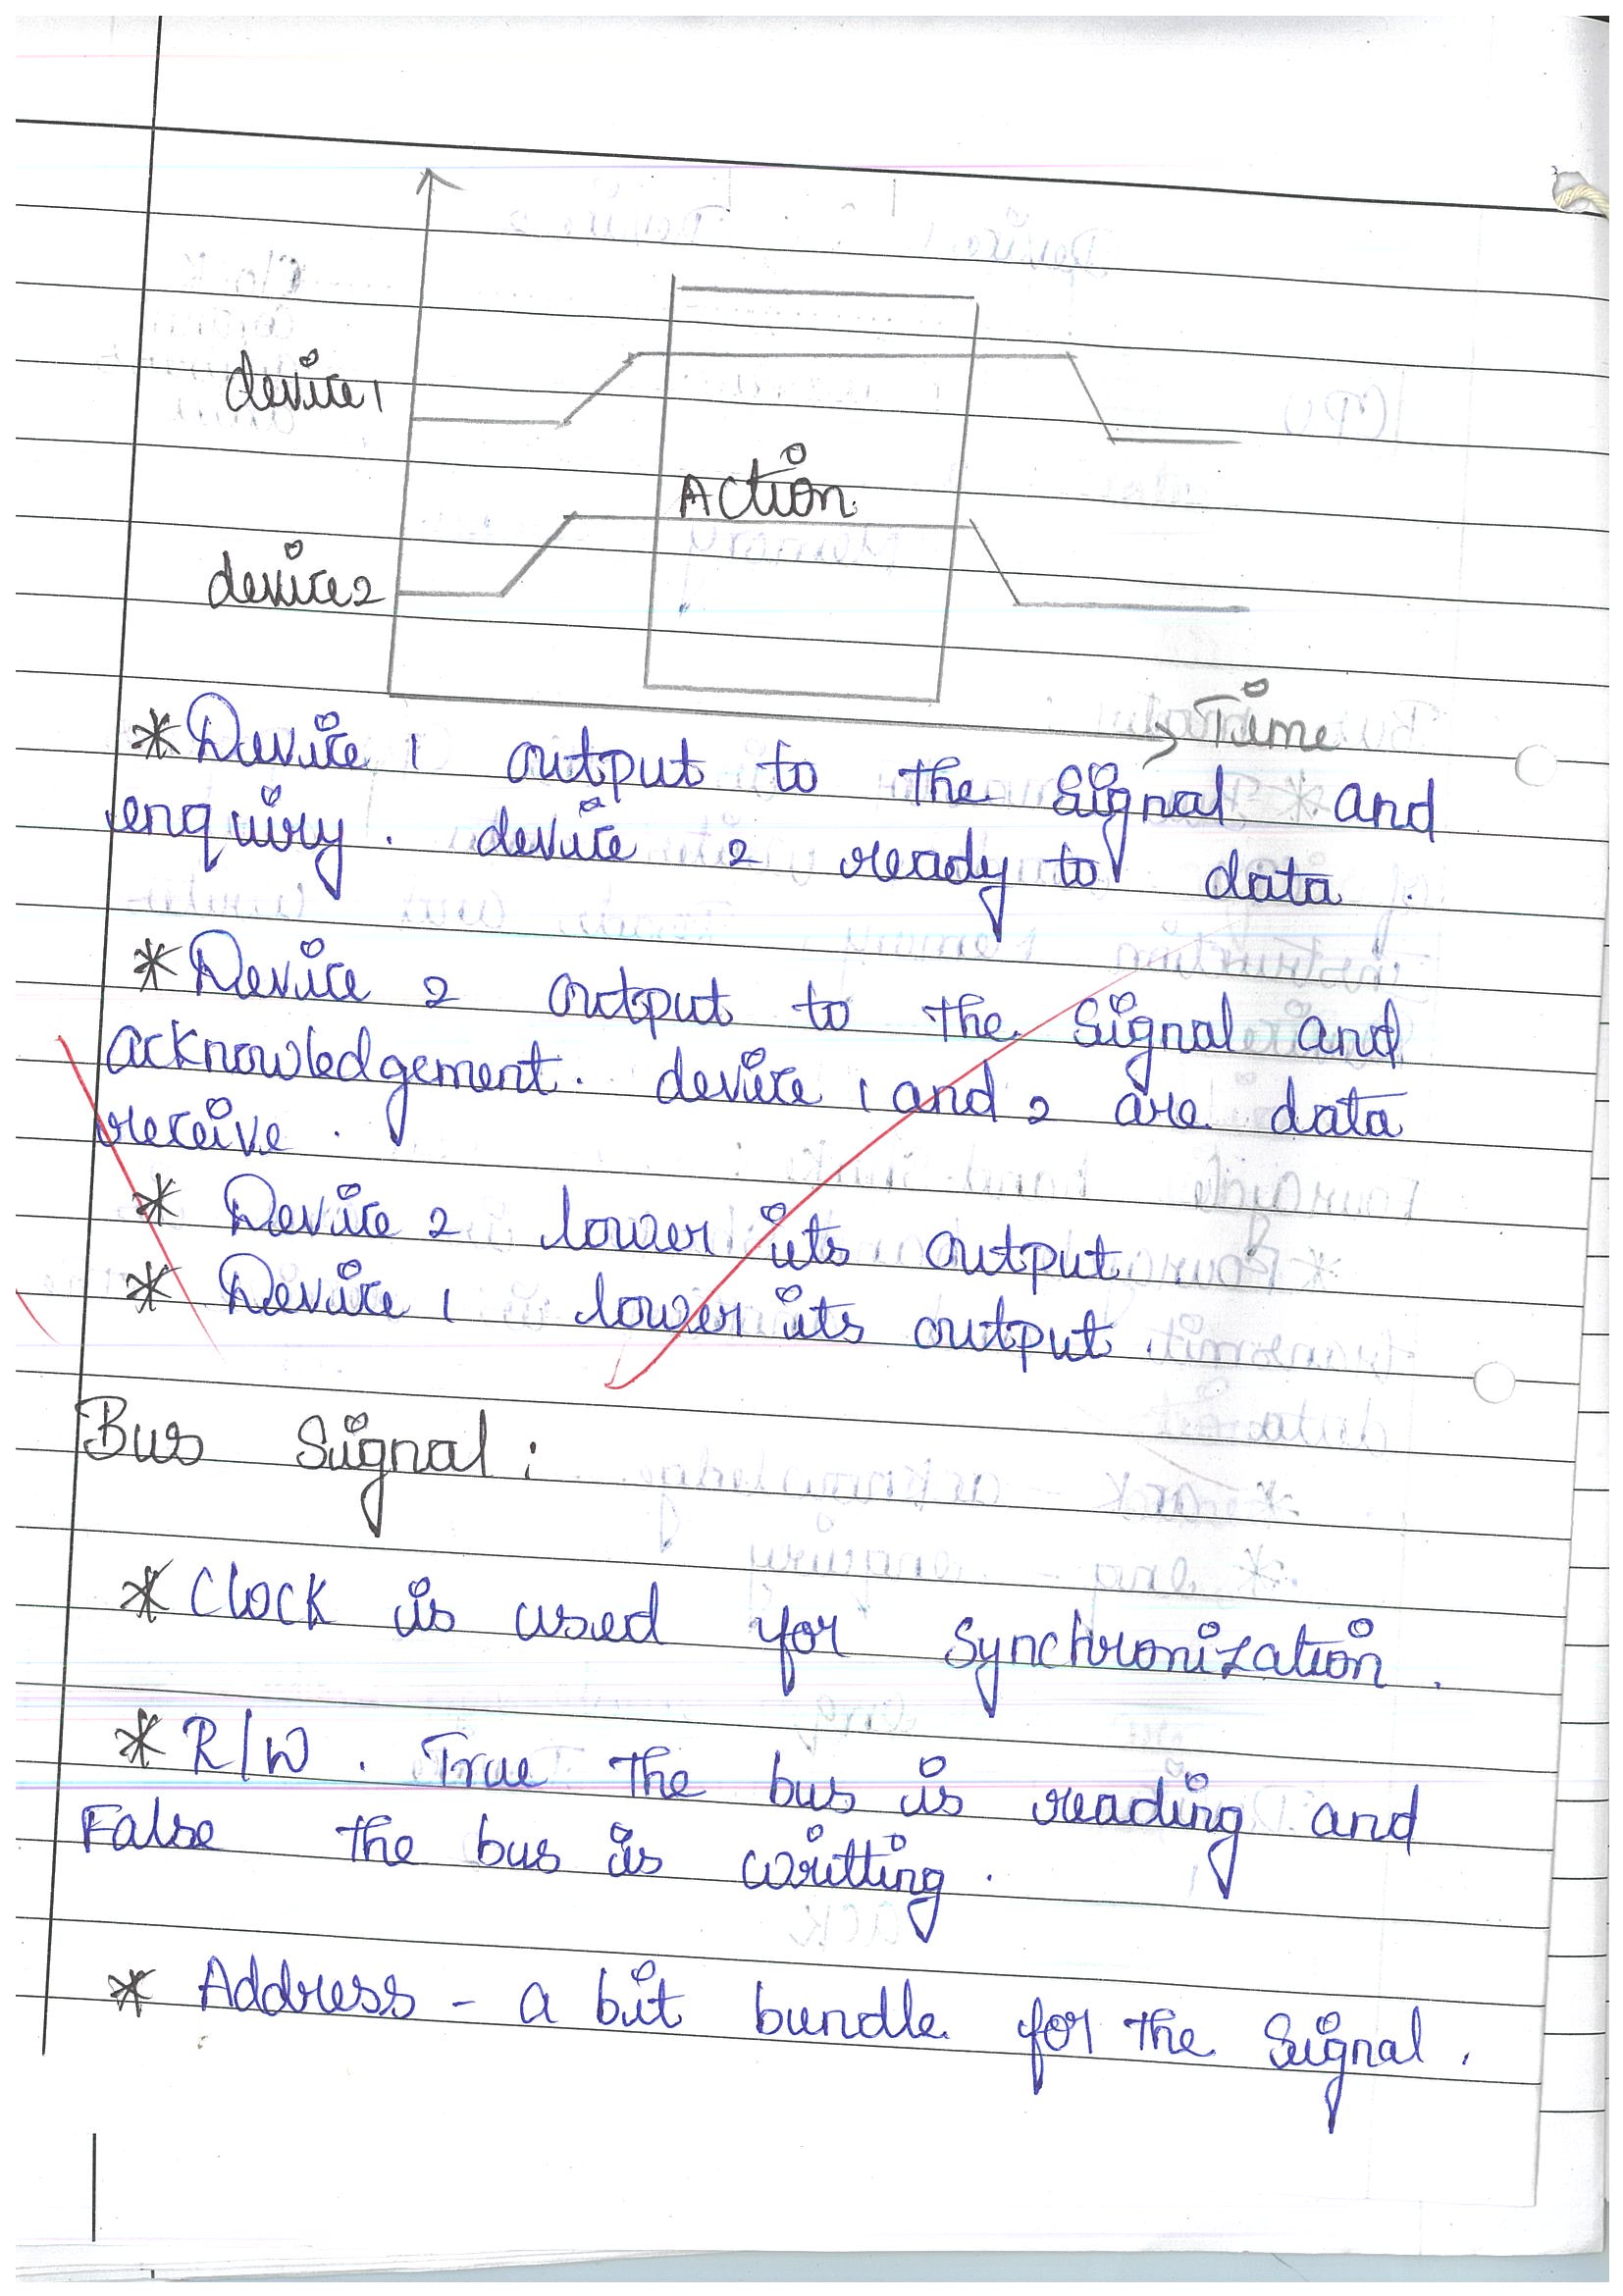 device1
Action
device2
Time
* Device 1 output to the signal and
enquiry. device 2 ready to data.
* Device 2 output to the signal and
acknowledgement. device 1 and 2 are data
receive.
* Device 2 lower its output
* Device 1 lower its output.
Bus Signal:
* Clock is used for synchronization.
* R/W. True the bus is reading and
False the bus is writting.
* Address - a bit bundle for the signal.